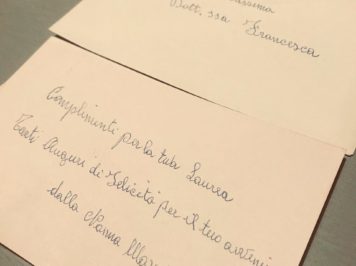 Dott.ssa Francesca
Complimenti per la tua Laurea
Tanti Auguri di Felicità per il tuo
dalla Nonna